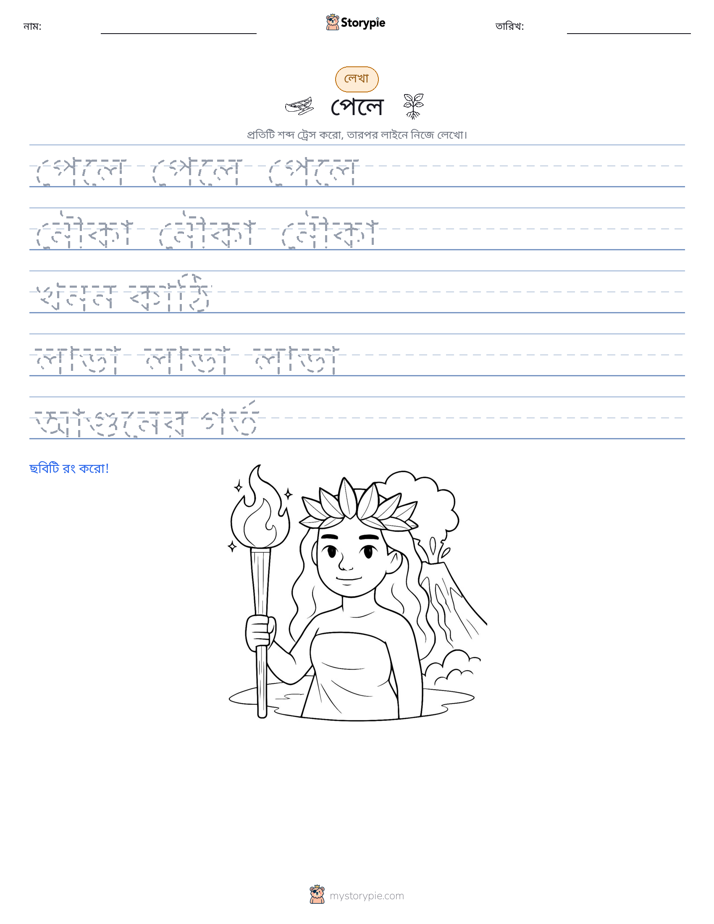 নাম:
Storypie
তারিখ:
লেখা
পেলে
প্রতিটি শব্দ ট্রেস করো, তারপর লাইনে নিজে লেখো।
পেলে পেলে পেলে
নৌকা নৌকা নৌকা
খনন কাঠি
লাভা লাভা লাভা
আগুনের গর্ত
ছবিটি রং করো!
mystorypie.com